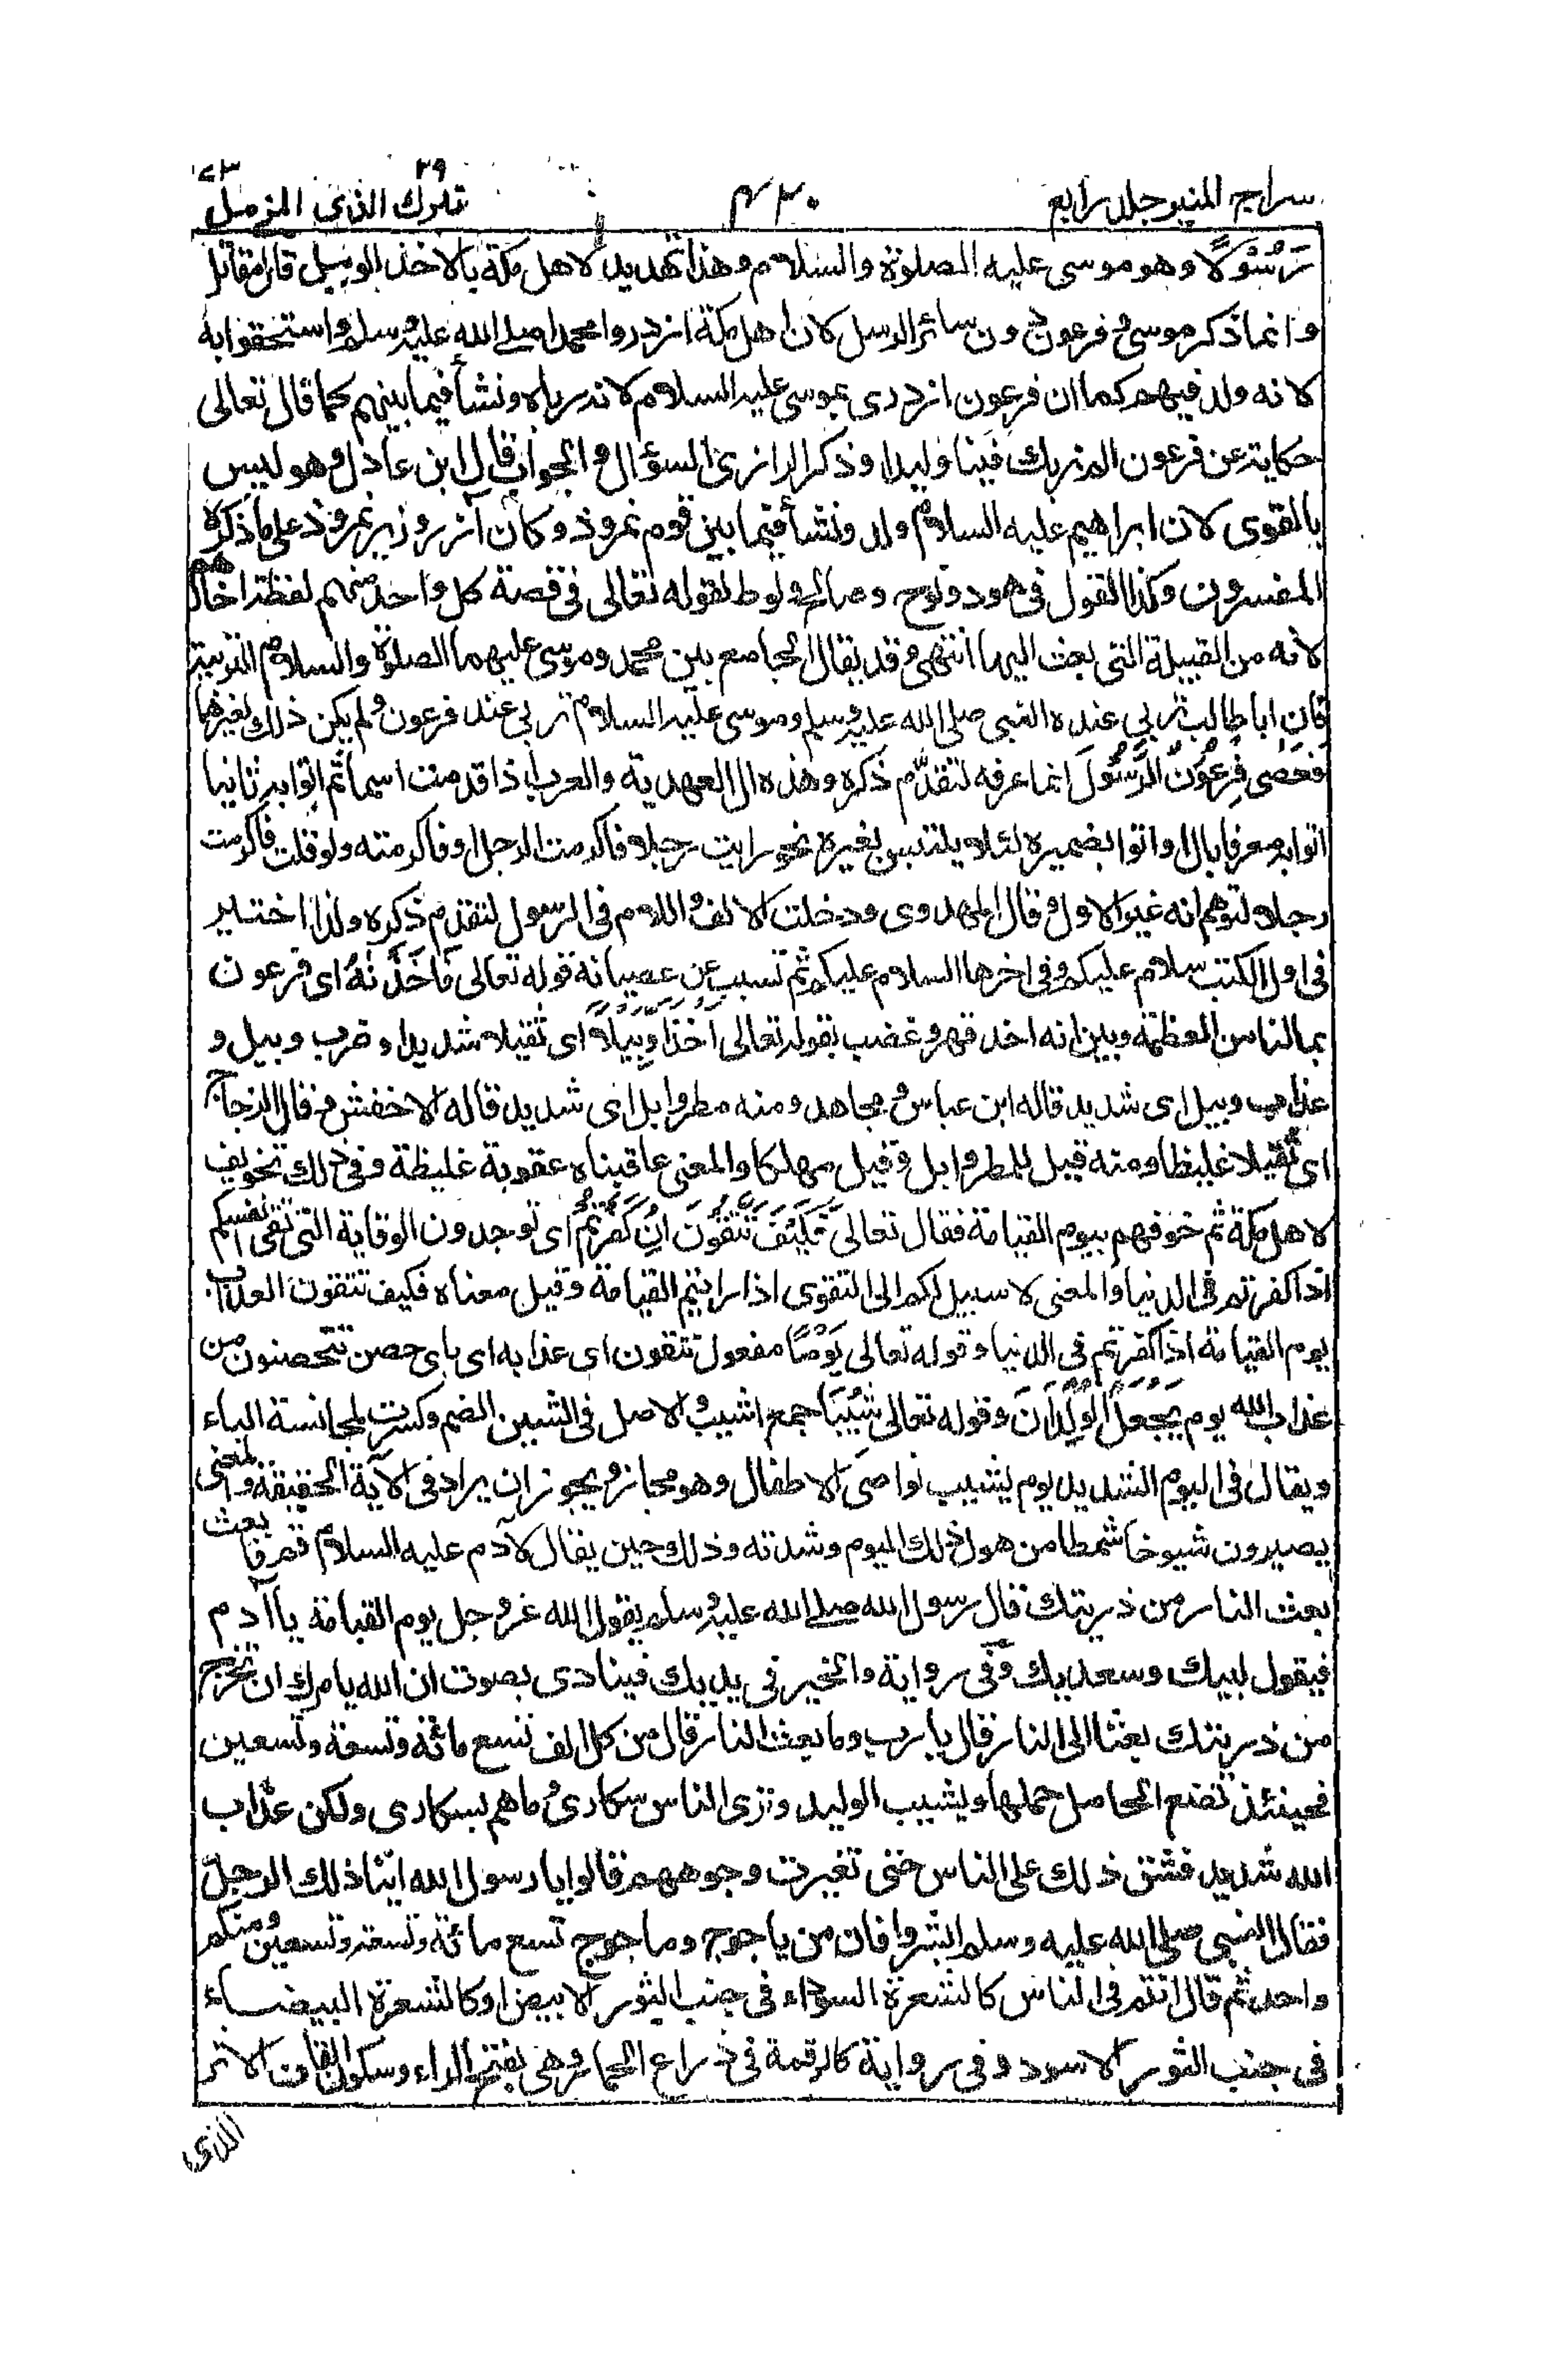 ٢٩ ٧٣
سراج المنير جلد رابع ٤٣٠ تبارك الذى المزمل
رَسُوْلًا وهو موسى عليه الصلوة والسلام وهذا تهديد لاهل مكة بالاخذ الوبيل قال مقاتل
وانما ذكر موسى و فرعون دون سائر الرسل لان اهل مكة ازدروا محمدا صلے الله عليه وسلم واستخفوا به
لانه ولد فيهم كما ان فرعون ازدرى بموسى عليه السلام لانه رباه ونشأ فيما بينهم كما قال تعالى
حكاية عن فرعون الم نربك فينا وليدا وذكر الرازى السؤال والجواب قال ابن عادل وهو ليس
بالقوى لان ابراهيم عليه السلام ولد ونشأ فيما بين قوم نمروذ وكان آزر وزير نمروذ على ما ذكره
المفسرون وكذا القول فى هود ونوح وصالح ولوط لقوله تعالى فى قصة كل واحد منهم لفظة اخاهم
لانه من القبيلة التى بعث اليها انتهى وقد يقال الجامع بين محمد وموسى عليهما الصلوة والسلام التربية
فان ابا طالب تربى عنده النبى صلى الله عليه وسلم وموسى عليه السلام تربى عند فرعون ولم يكن ذلك لغيرهما
فَعَصٰى فِرْعَوْنُ الرَّسُوْلَ انما عرفه لتقدم ذكره وهذه ال العهدية والعرب اذا قدمت اسما ثم اتوا به ثانيا
اتوا به معرفا بال او اتوا بضميره لئلا يلتبس بغيره نحو رايت رجلا فاكرمت الرجل او فاكرمته ولو قلت فاكرمت
رجلا لتوهم انه غير الاول وقال المهدوى ودخلت الالف واللام فى الرسول لتقدم ذكره ولذا اختير
فى اول الكتب سلام عليكم وفى اخرها السلام عليكم ثم تسبب عن عصيانه قوله تعالى فَاَخَذْنٰهُ اى فرعون
بما لنا من العظمة وبين انه اخذ قهر وغضب بقوله تعالى اَخْذًا وَّبِيْلًا اى ثقيلا شديدا وضرب وبيل و
عذاب وبيل اى شديد قاله ابن عباس و مجاهد ومنه مطر وابل اى شديد قاله الاخفش وقال الزجاج
اى ثقيلا غليظا ومنه قيل للمطر وابل وقيل مهلكا والمعنى عاقبناه عقوبة غليظة وفى ذلك تخويف
لاهل مكة ثم خوفهم بيوم القيامة فقال تعالى فَكَيْفَ تَتَّقُوْنَ اِنْ كَفَرْتُمْ اى توجدون الوقاية التى تقى انفسكم
اذا كفرتم فى الدنيا والمعنى لا سبيل لكم الى التقوى اذا رايتم القيامة وقيل معناه فكيف تتقون العذاب
يوم القيامة اذا كفرتم فى الدنيا وقوله تعالى يَوْمًا مفعول تتقون اى عذابه اى باى حصن تتحصنون من
عذاب الله يوم يَّجْعَلُ الْوِلْدَانَ وقوله تعالى شِيْبًا جمع اشيب والاصل فى الشين الضم وكسرت لمجانسة الياء
ويقال فى اليوم الشديد يوم يشيب نواصى الاطفال وهو مجاز ويجوز ان يراد فى الآية الحقيقة والمعنى
يصيرون شيوخا شمطا من هول ذلك اليوم وشدته وذلك حين يقال لآدم عليه السلام قم فابعث
بعث النار من ذريتك قال رسول الله صلے الله عليه وسلم يقول الله عز وجل يوم القيامة يا آدم
فيقول لبيك وسعديك وفى رواية والخير فى يديك فينادى بصوت ان الله يامرك ان تخرج
من ذريتك بعثا الى النار قال يا رب وما بعث النار قال من كل الف تسع مائة وتسعة وتسعين
فحينئذ تضع الحامل حملها ويشيب الوليد وترى الناس سكارى وما هم بسكارى ولكن عذاب
الله شديد فشق ذلك على الناس حتى تغيرت وجوههم قالوا يا رسول الله اينا ذلك الرجل
فقال النبى صلى الله عليه وسلم ابشروا فان من ياجوج وماجوج تسع مائة وتسعة وتسعين ومنكم
واحد ثم قال انتم فى الناس كالشعرة السوداء فى جنب الثور الابيض او كالشعرة البيضاء
فى جنب الثور الاسود وفى رواية كالرقمة فى ذراع الحمار وهى بفتح الراء وسكون القاف الاثر
الذى